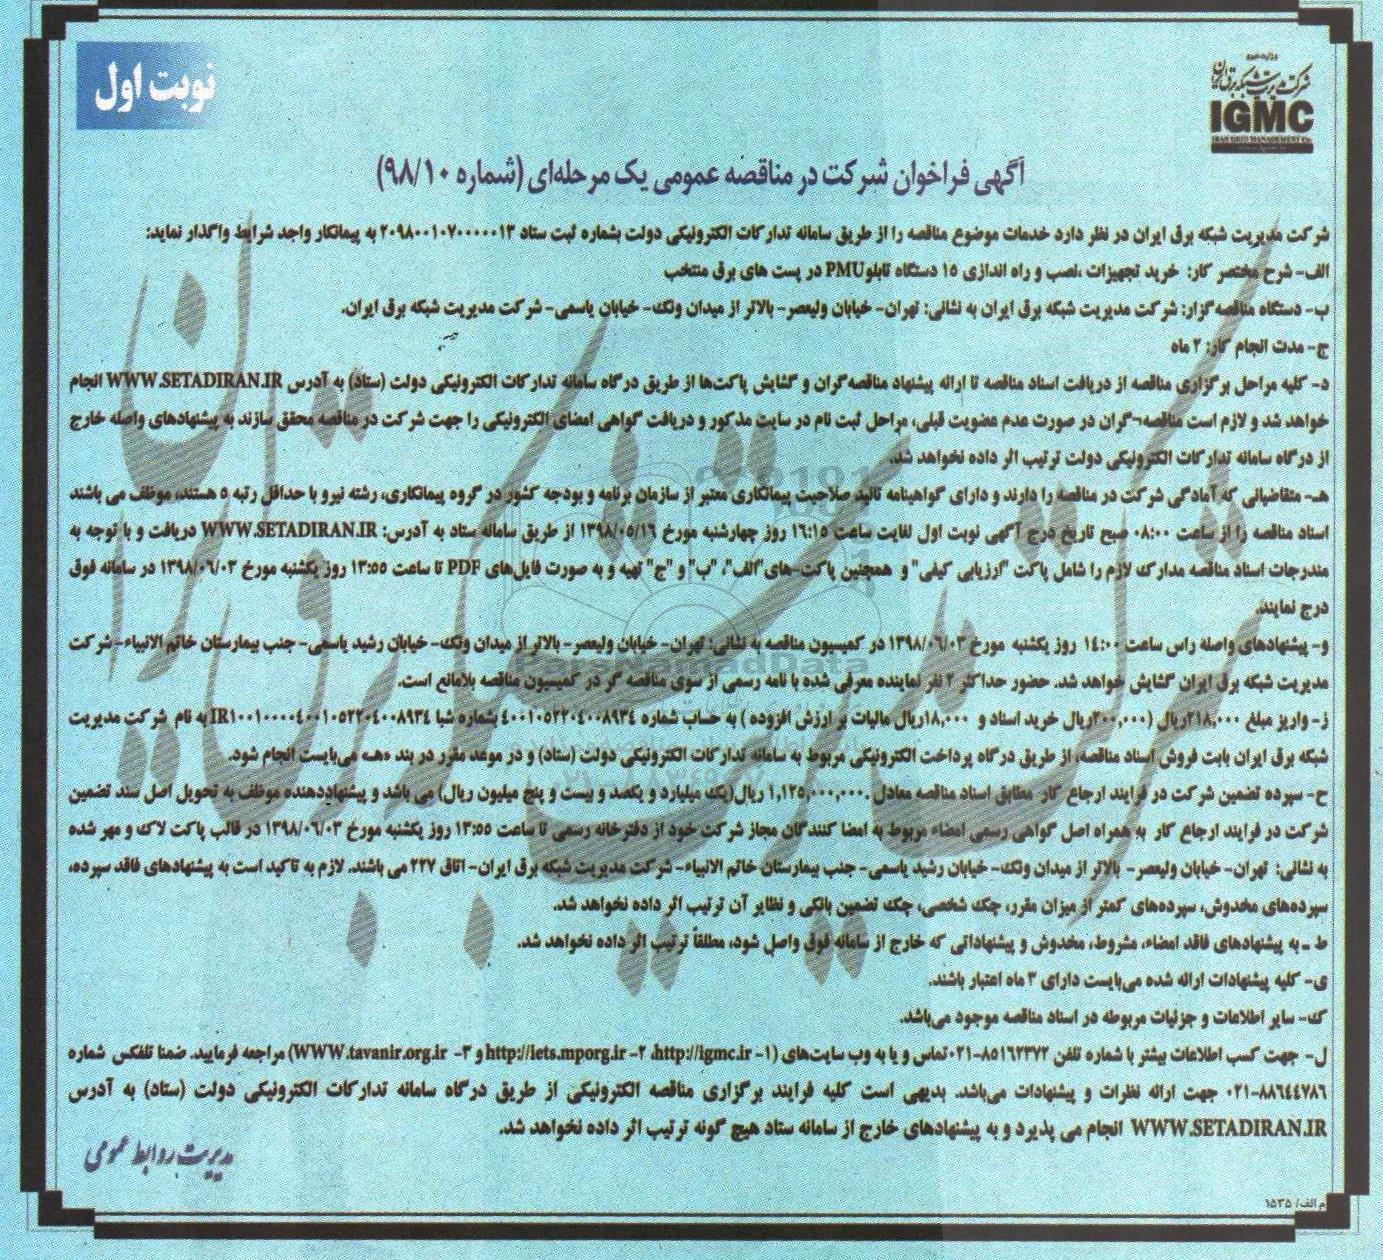 نوبت اول
وزارت نیرو
شرکت مدیریت شبکه برق ایران
IGMC
IRAN GRID MANAGEMENT Co.
آگهی فراخوان شرکت در مناقصه عمومی یک مرحله‌ای (شماره ۹۸/۱۰)
شرکت مدیریت شبکه برق ایران در نظر دارد خدمات موضوع مناقصه را از طریق سامانه تدارکات الکترونیکی دولت بشماره ثبت ستاد ۲۰۹۸۰۰۱۰۷۰۰۰۰۰۱۳ به پیمانکار واجد شرایط واگذار نماید:
الف- شرح مختصر کار: خرید تجهیزات ،نصب و راه اندازی ۱۵ دستگاه تابلوPMU در پست های برق منتخب
ب- دستگاه مناقصه گزار: شرکت مدیریت شبکه برق ایران به نشانی: تهران- خیابان ولیعصر- بالاتر از میدان ونک- خیابان یاسمی- شرکت مدیریت شبکه برق ایران.
ج- مدت انجام کار: ۲ ماه
د- کلیه مراحل برگزاری مناقصه از دریافت اسناد مناقصه تا ارائه پیشنهاد مناقصه‌گران و گشایش پاکت‌ها از طریق درگاه سامانه تدارکات الکترونیکی دولت (ستاد) به آدرس WWW.SETADIRAN.IR انجام
خواهد شد و لازم است مناقصه-گران در صورت عدم عضویت قبلی، مراحل ثبت نام در سایت مذکور و دریافت گواهی امضای الکترونیکی را جهت شرکت در مناقصه محقق سازند به پیشنهادهای واصله خارج
از درگاه سامانه تدارکات الکترونیکی دولت ترتیب اثر داده نخواهد شد.
هـ- متقاضیانی که آمادگی شرکت در مناقصه را دارند و دارای گواهینامه تائید صلاحیت پیمانکاری معتبر از سازمان برنامه و بودجه کشور در گروه پیمانکاری، رشته نیرو با حداقل رتبه ۵ هستند، موظف می باشند
اسناد مناقصه را از ساعت ۰۸:۰۰ صبح تاریخ درج آگهی نوبت اول لغایت ساعت ۱۶:۱۵ روز چهارشنبه مورخ ۱۳۹۸/۰۵/۱۶ از طریق سامانه ستاد به آدرس: WWW.SETADIRAN.IR دریافت و با توجه به
مندرجات اسناد مناقصه مدارک لازم را شامل پاکت "ارزیابی کیفی" و همچنین پاکت-های"الف"، "ب" و "ج" تهیه و به صورت فایل‌های PDF تا ساعت ۱۳:۵۵ روز یکشنبه مورخ ۱۳۹۸/۰۶/۰۳ در سامانه فوق
درج نمایند.
و- پیشنهادهای واصله راس ساعت ۱۴:۰۰ روز یکشنبه مورخ ۱۳۹۸/۰۶/۰۳ در کمیسیون مناقصه به نشانی: تهران- خیابان ولیعصر- بالاتر از میدان ونک- خیابان رشید یاسمی- جنب بیمارستان خاتم الانبیاء- شرکت
مدیریت شبکه برق ایران گشایش خواهد شد. حضور حداکثر ۲ نفر نماینده معرفی شده با نامه رسمی از سوی مناقصه گر در کمیسیون مناقصه بلامانع است.
ز- واریز مبلغ ۲۱۸,۰۰۰ریال (۲۰۰,۰۰۰ریال خرید اسناد و ۱۸,۰۰۰ریال مالیات بر ارزش افزوده ) به حساب شماره ۴۰۰۱۰۵۲۲۰۴۰۰۸۹۳۴ بشماره شبا IR۱۰۰۱۰۰۰۰۴۰۰۱۰۵۲۲۰۴۰۰۸۹۳۴ به نام شرکت مدیریت
شبکه برق ایران بابت فروش اسناد مناقصه، از طریق درگاه پرداخت الکترونیکی مربوط به سامانه تدارکات الکترونیکی دولت (ستاد) و در موعد مقرر در بند «هـ» می‌بایست انجام شود.
ح- سپرده تضمین شرکت در فرایند ارجاع کار مطابق اسناد مناقصه معادل ۱,۱۲۵,۰۰۰,۰۰۰ ریال(یک میلیارد و یکصد و بیست و پنج میلیون ریال) می باشد و پیشنهاددهنده موظف به تحویل اصل سند تضمین
شرکت در فرایند ارجاع کار به همراه اصل گواهی رسمی امضاء مربوط به امضا کنندگان مجاز شرکت خود از دفترخانه رسمی تا ساعت ۱۳:۵۵ روز یکشنبه مورخ ۱۳۹۸/۰۶/۰۳ در قالب پاکت لاک و مهر شده
به نشانی: تهران- خیابان ولیعصر- بالاتر از میدان ونک- خیابان رشید یاسمی- جنب بیمارستان خاتم الانبیاء- شرکت مدیریت شبکه برق ایران- اتاق ۲۲۷ می باشند. لازم به تاکید است به پیشنهادهای فاقد سپرده،
سپرده‌های مخدوش، سپرده‌های کمتر از میزان مقرر، چک شخصی، چک تضمین بانکی و نظایر آن ترتیب اثر داده نخواهد شد.
ط ـ به پیشنهادهای فاقد امضاء، مشروط، مخدوش و پیشنهاداتی که خارج از سامانه فوق واصل شود، مطلقاً ترتیب اثر داده نخواهد شد.
ی- کلیه پیشنهادات ارائه شده می‌بایست دارای ۳ ماه اعتبار باشند.
ک- سایر اطلاعات و جزئیات مربوطه در اسناد مناقصه موجود می‌باشد.
ل- جهت کسب اطلاعات بیشتر با شماره تلفن ۸۵۱۶۲۳۷۲-۰۲۱تماس و یا به وب سایت‌های (۱- http://igmc.ir، ۲- http://iets.mporg.ir و ۳- WWW.tavanir.org.ir) مراجعه فرمایید. ضمنا تلفکس شماره
۸۸۶۴۴۷۸۶-۰۲۱ جهت ارائه نظرات و پیشنهادات می‌باشد. بدیهی است کلیه فرایند برگزاری مناقصه الکترونیکی از طریق درگاه سامانه تدارکات الکترونیکی دولت (ستاد) به آدرس
WWW.SETADIRAN.IR انجام می پذیرد و به پیشنهادهای خارج از سامانه ستاد هیچ گونه ترتیب اثر داده نخواهد شد.
مدیریت روابط عمومی
م الف/ ۱۵۳۵
ParsNamadData